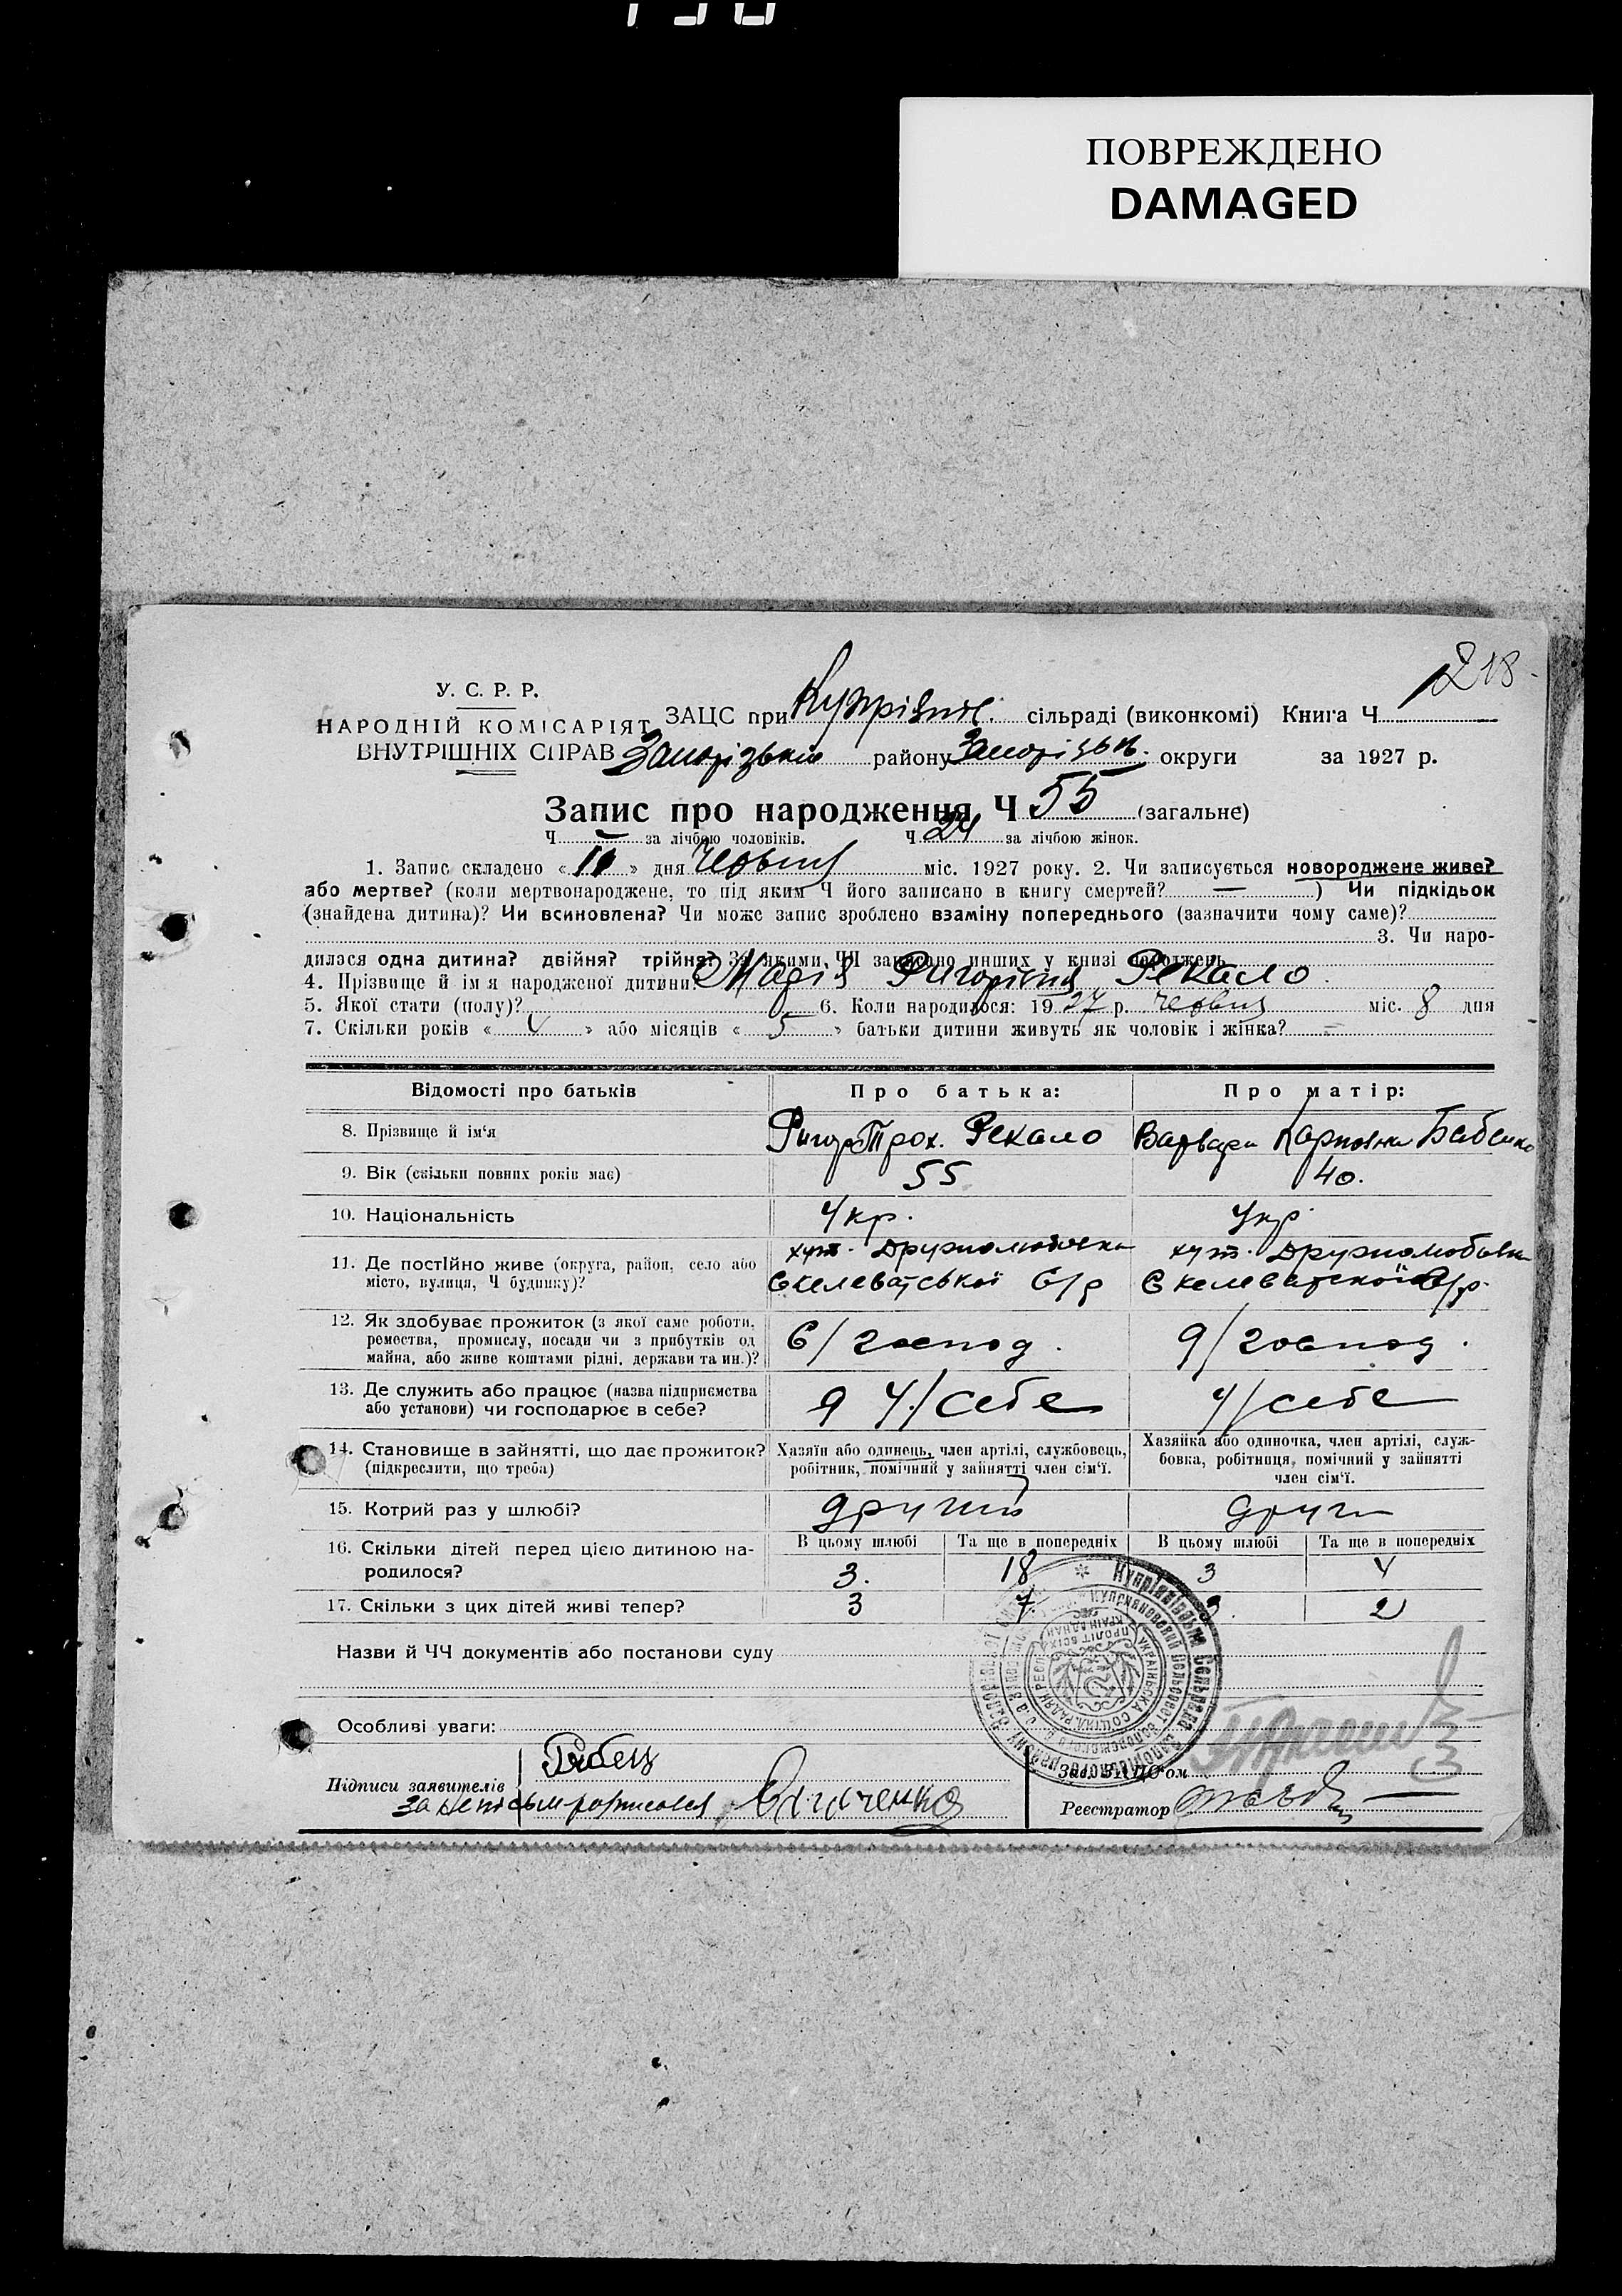 ПОВРЕЖДЕНО
DAMAGED
218
У. С. Р. Р.
НАРОДНІЙ КОМІСАРІЯТ
ВНУТРІШНІХ СПРАВ
ЗАЦС при Купрівят. сільраді (виконкомі) Книга Ч
Запорізьк району Запорізьк. округи за 1927 р.
Запис про народження Ч 55 (загальне)
Ч за лічбою чоловіків. Ч 24 за лічбою жінок.
1. Запис складено « » дня Червня міс. 1927 року. 2. Чи записується новороджене живе?
або мертве? (коли мертвонароджене, то під яким Ч його записано в книгу смертей? — ) Чи підкідьок
(знайдена дитина)? Чи всиновлена? Чи може запис зроблено взаміну попереднього (зазначити чому саме)?
3. Чи наро-
дилася одна дитина? двійня? трійня? За якими ЧЧ записано инших у книзі народжень
4. Прізвище й ім'я народженої дитини? Марія Ригорівна Рекало.
5. Якої стати (полу)? 6. Коли народилося: 1927 р. Червня міс. 8 дня
7. Скільки років « 4 » або місяців « 5 » батьки дитини живуть як чоловік і жінка? –
Відомості про батьків Про батька: Про матір:
8. Прізвище й ім'я Ригор Трох. Рекало Варвара Карповна Бабенко
9. Вік (скільки повних років має) 55 40.
10. Національність Укр. Укр.
11. Де постійно живе (округа, район, село або місто, вулиця, Ч будинку)? хут. Дружолюбівка хут. Дружолюбовка
Скелеватської С/р Скелеватської С/р.
12. Як здобуває прожиток (з якої саме роботи, ремества, промислу, посади чи з прибутків од майна, або живе коштами рідні, держави та ин.)? С/господ. 9/господ.
13. Де служить або працює (назва підприємства або установи) чи господарює в себе? 9 У/себе У/себе
14. Становище в зайнятті, що дає прожиток? (підкреслити, що треба)
Хазяїн або одинець, член артілі, службовець, робітник, помічний у зайнятті член сім'ї.
Хазяйка або одиночка, член артілі, служ-
бовка, робітниця, помічний у зайнятті
член сім'ї.
15. Котрий раз у шлюбі? другий друг
В цьому шлюбі Та ще в попередніх В цьому шлюбі Та ще в попередніх
16. Скільки дітей перед цією дитиною на-
родилося? 3. 18 3 4
17. Скільки з цих дітей живі тепер? 3 7. 3. 2
Назви й ЧЧ документів або постанови суду
Особливі уваги:
Підписи заявителів
Зав. ЗАЦС'ом
Реєстратор